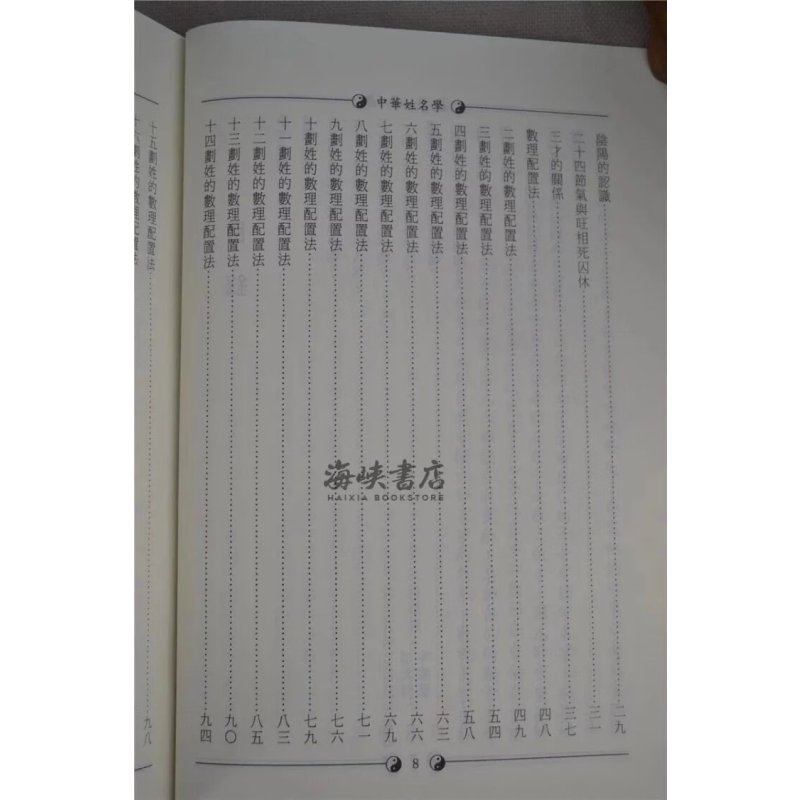 中華姓名學
陰陽的認識……二九
二十四節氣與旺相死囚休……三一
三才的關係……三七
數理配置法……四八
二劃姓的數理配置法……四九
三劃姓的數理配置法……五四
四劃姓的數理配置法……五八
五劃姓的數理配置法……六三
六劃姓的數理配置法……六六
七劃姓的數理配置法……六九
八劃姓的數理配置法……七一
九劃姓的數理配置法……七六
十劃姓的數理配置法……七九
十一劃姓的數理配置法……八三
十二劃姓的數理配置法……八五
十三劃姓的數理配置法……九〇
十四劃姓的數理配置法……九四
8
十五劃姓的數理配置法……九八
十六劃姓的數理配置法
海峡書店
HAIXIA BOOKSTORE